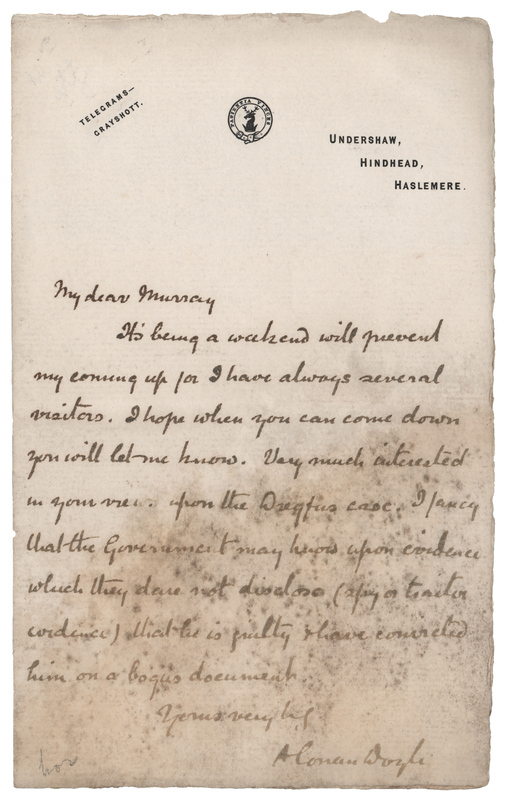 TELEGRAMS—
GRAYSHOTT.
PATIENTIA VINCIT
UNDERSHAW,
HINDHEAD,
HASLEMERE.
My dear Murray
It's being a weekend will prevent
my coming up for I have always several
visitors. I hope when you can come down
you will let me know. Very much interested
in your view upon the Dreyfus case. I fancy
that the Government may know upon evidence
which they dare not disclose (spy or traitor
evidence) that he is guilty & have convicted
him on a bogus document.
Yours very
A Conan Doyle